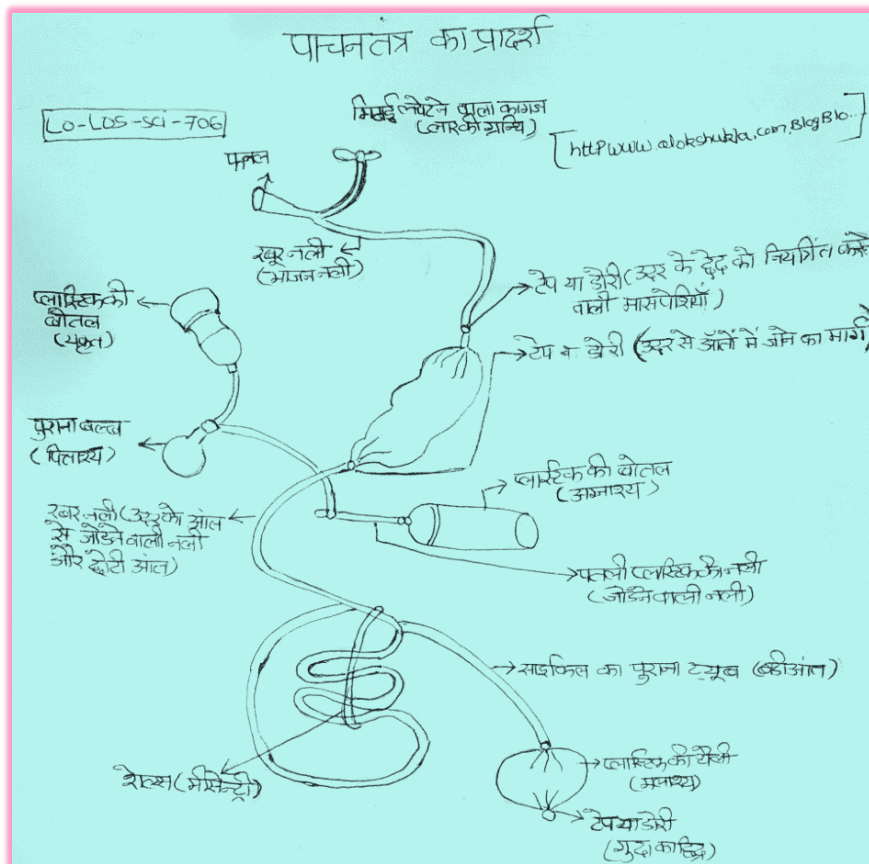 पाचनतंत्र का प्रादर्श
LO-LDS-SCI-706
मिठाई लपेटने वाला कागज
(लार की ग्रन्थि)
[http www.alokshukla.com,BlogBlo..]
फनल
रबर नली
(भोजन नली)
टेप या डोरी (उदर के छेद को नियंत्रित करने
वाली मांसपेशियाँ)
प्लास्टिक की
बोतल
(यकृत)
टेप या डोरी (उदर से आँतों में जाने का मार्ग)
पुराना बल्ब
(पित्ताश्य)
प्लास्टिक की बोतल
(अग्नाश्य)
रबर नली (उदर को आंत
से जोडने वाली नली
और छोटी आंत)
पतली प्लास्टिक की नली
(जोडने वाली नली)
साइकिल का पुराना टयूब (बडी आंत)
शेल्स (मीसेन्ट्री)
प्लास्टिक की थैली
(मलाश्य)
टेप या डोरी
(गुदा का छिद्र)